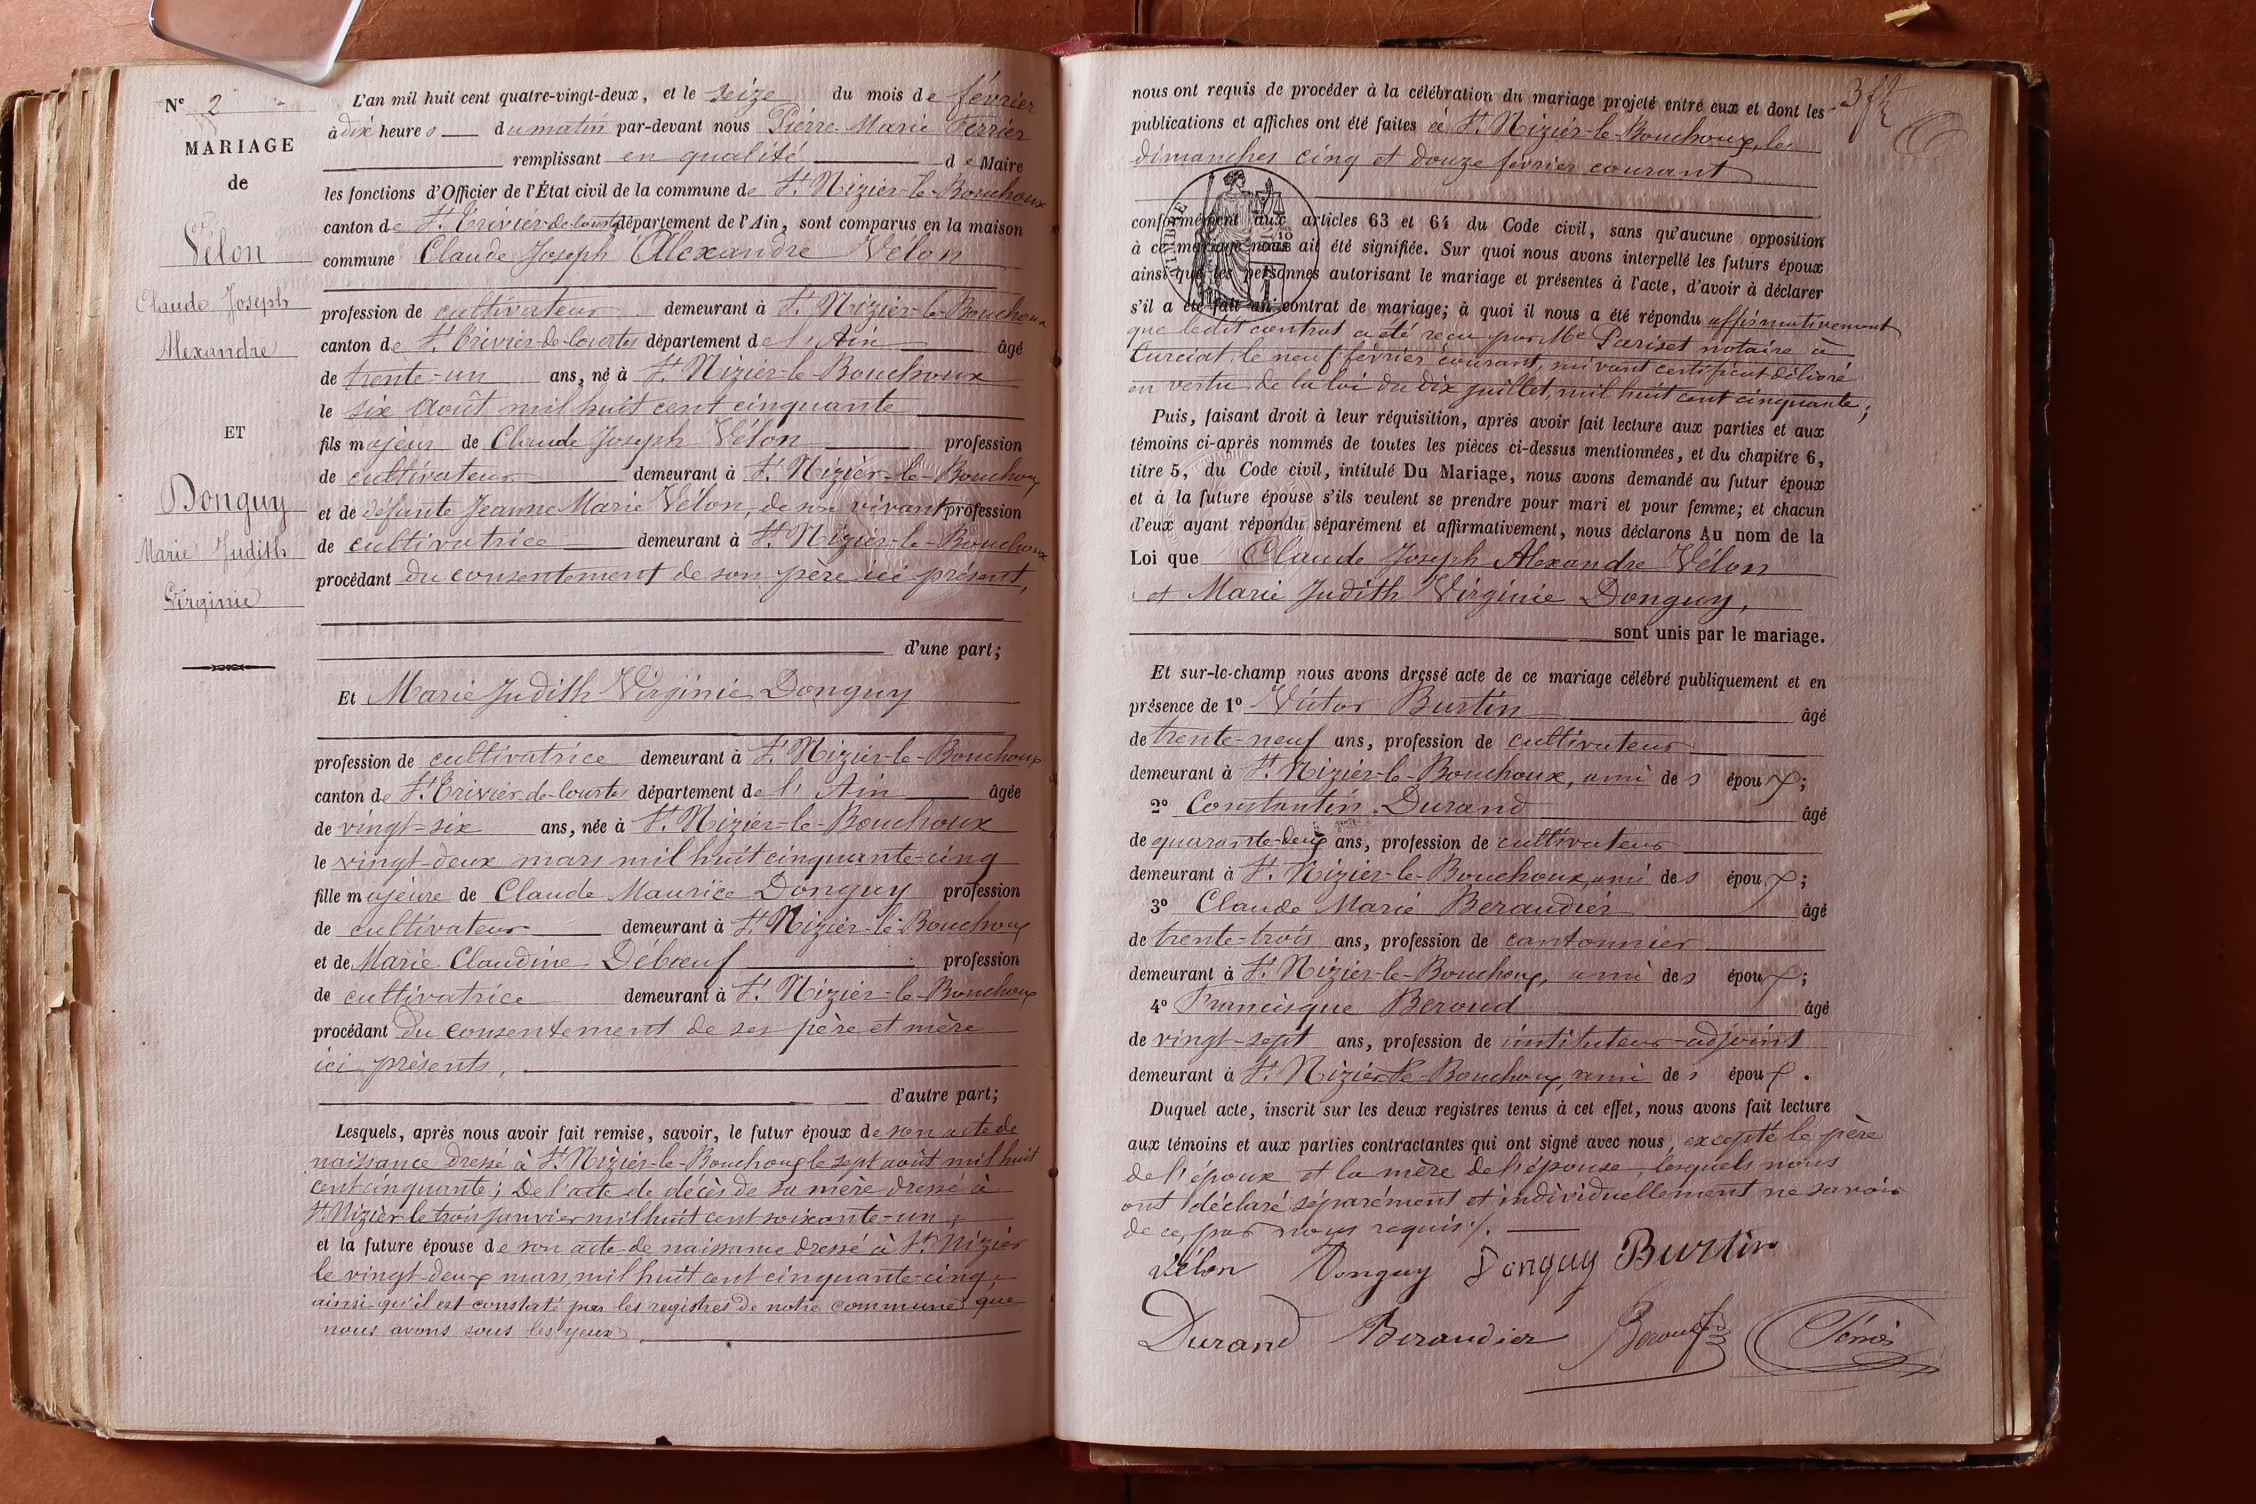 N° 2
MARIAGE
de
Vélon
Claude Joseph
Alexandre
ET
Donguy
Marie Judith
Virginie
L'an mil huit cent quatre-vingt-deux, et le seize du mois de février
à dix heures du matin par-devant nous Pierre Marie Ferrier
remplissant en qualité de Maire
les fonctions d'Officier de l'État civil de la commune de St. Nizier-le-Bouchoux
canton de St. Trivier-de-Courtes département de l'Ain, sont comparus en la maison
commune Claude Joseph Alexandre Vélon
profession de cultivateur demeurant à St. Nizier-le-Bouchoux
canton de St. Trivier-de-Courtes département de l'Ain âgé
de trente-un ans, né à St. Nizier-le-Bouchoux
le six Août mil huit cent cinquante
fils majeur de Claude Joseph Vélon profession
de cultivateur demeurant à St. Nizier-le-Bouchoux
et de défunte Jeanne Marie Vélon, de son vivant profession
de cultivatrice demeurant à St. Nizier-le-Bouchoux
procédant du consentement de son père ici présent,
d'une part;
Et Marie Judith Virginie Donguy
profession de cultivatrice demeurant à St. Nizier-le-Bouchoux
canton de St. Trivier-de-Courtes département de l'Ain âgée
de vingt-six ans, née à St. Nizier-le-Bouchoux
le vingt-deux mars mil huit cinquante-cinq
fille majeure de Claude Maurice Donguy profession
de cultivateur demeurant à St. Nizier-le-Bouchoux
et de Marie Claudine Débœuf profession
de cultivatrice demeurant à St. Nizier-le-Bouchoux
procédant du consentement de ses père et mère
ici présents,
d'autre part;
Lesquels, après nous avoir fait remise, savoir, le futur époux de son acte de
naissance dressé à St. Nizier-le-Bouchoux le sept août mil huit
cent cinquante; De l'acte de décès de sa mère dressé à
St. Nizier le trois janvier mil huit cent soixante-un,
et la future épouse de son acte de naissance dressé à St. Nizier
le vingt-deux mars mil huit cent cinquante-cinq,
ainsi qu'il est constaté par les registres de notre commune que
nous avons sous les yeux
nous ont requis de procéder à la célébration du mariage projeté entre eux et dont les
publications et affiches ont été faites à St. Nizier-le-Bouchoux, les
dimanches cinq et douze février courant
conformément aux articles 63 et 64 du Code civil, sans qu'aucune opposition
à ce mariage nous ait été signifiée. Sur quoi nous avons interpellé les futurs époux
ainsi que les personnes autorisant le mariage et présentes à l'acte, d'avoir à déclarer
s'il a été fait un contrat de mariage; à quoi il nous a été répondu affirmativement
que ledit contrat a été reçu par Me Pariset notaire à
Curciat, le neuf février courant, suivant certificat délivré
en vertu de la loi du dix juillet, mil huit cent cinquante;
Puis, faisant droit à leur réquisition, après avoir fait lecture aux parties et aux
témoins ci-après nommés de toutes les pièces ci-dessus mentionnées, et du chapitre 6,
titre 5, du Code civil, intitulé Du Mariage, nous avons demandé au futur époux
et à la future épouse s'ils veulent se prendre pour mari et pour femme; et chacun
d'eux ayant répondu séparément et affirmativement, nous déclarons Au nom de la
Loi que Claude Joseph Alexandre Vélon
et Marie Judith Virginie Donguy,
sont unis par le mariage.
Et sur-le-champ nous avons dressé acte de ce mariage célébré publiquement et en
présence de 1° Victor Burtin âgé
de trente-neuf ans, profession de cultivateur
demeurant à St. Nizier-le-Bouchoux, ami des époux;
2° Constantin Durand âgé
de quarante-deux ans, profession de cultivateur
demeurant à St. Nizier-le-Bouchoux, ami des époux;
3° Claude Marie Beraudier âgé
de trente-trois ans, profession de cantonnier
demeurant à St. Nizier-le-Bouchoux, ami des époux;
4° Francisque Beroud âgé
de vingt-sept ans, profession de instituteur-adjoint
demeurant à St. Nizier-le-Bouchoux, ami des époux.
Duquel acte, inscrit sur les deux registres tenus à cet effet, nous avons fait lecture
aux témoins et aux parties contractantes qui ont signé avec nous, excepté le père
de l'époux et la mère de l'épouse, lesquels nous
ont déclaré séparément et individuellement ne savoir
de ce, par nous requis ./.
Vélon Donguy Donguy Burtin
Durand Beraudier Beroud